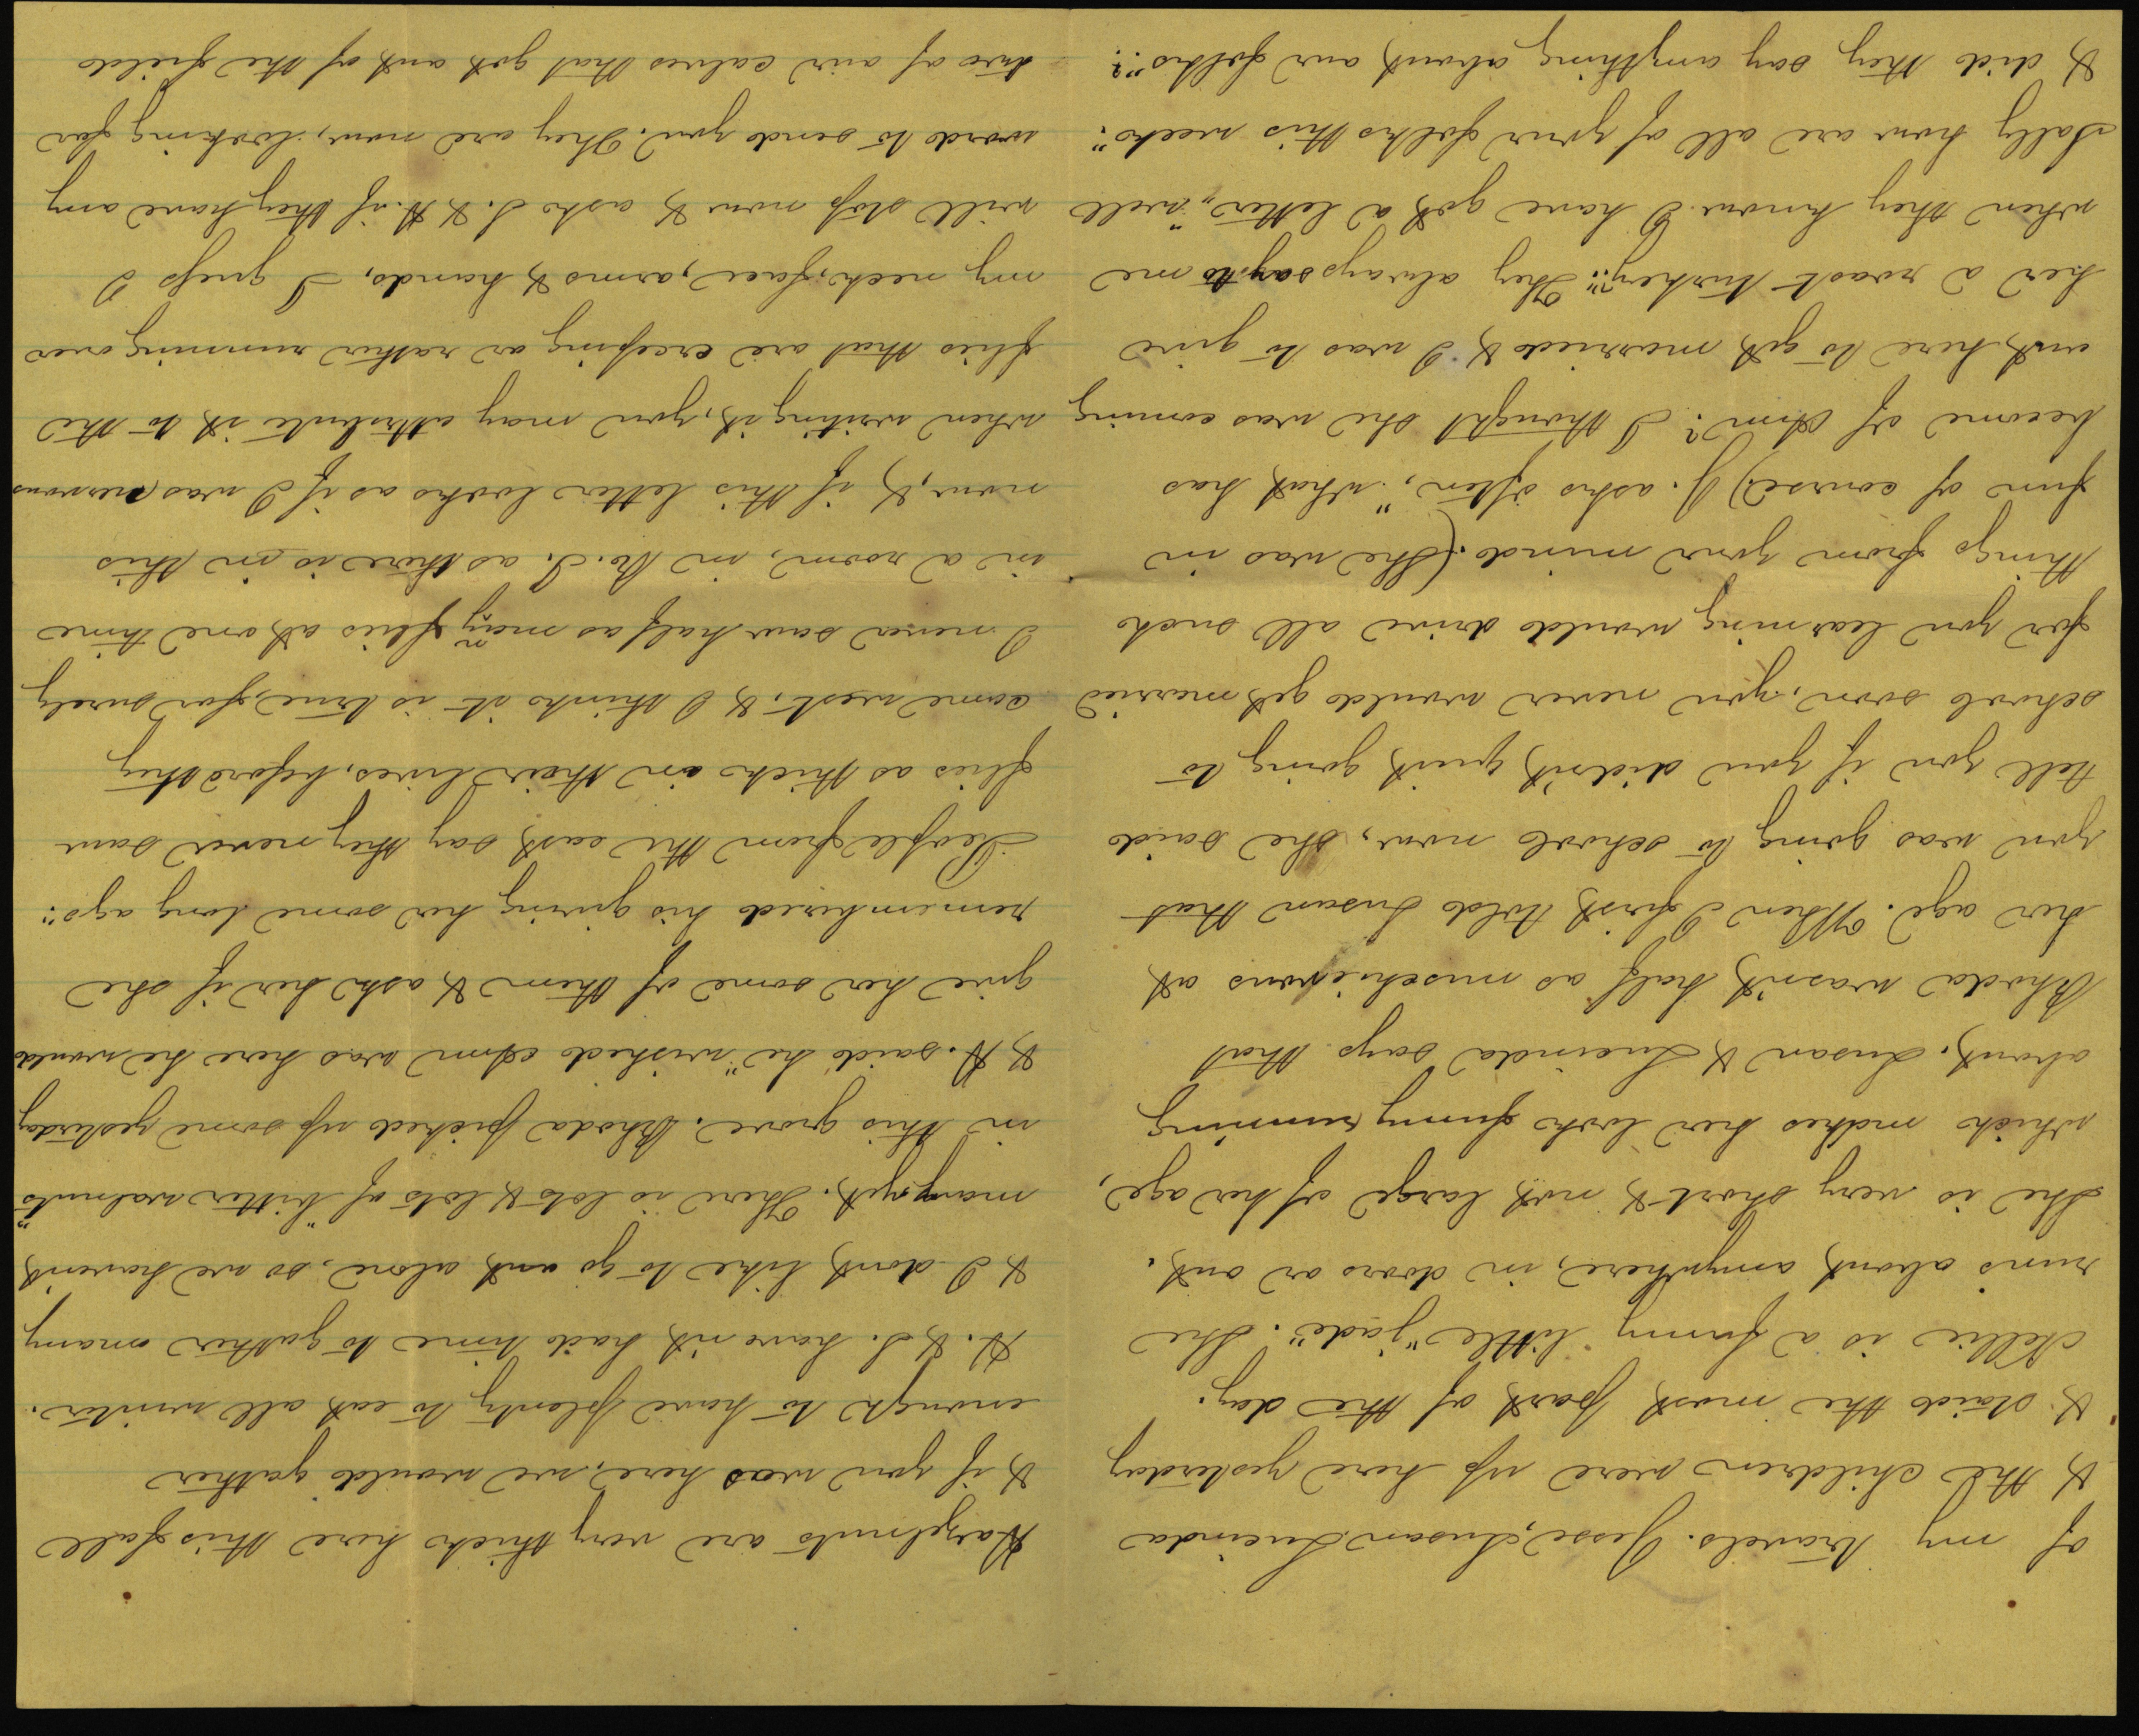 of my travels. Jesse, Susan Lucinda
& the children were up here yesterday
& staid the most part of the day.
Nellie is a funny little "jade". She
runs about anywhere, in doors or out.
She is very short & not large of her age,
which makes her look funny running
about. Susan & Lucinda says that
Rhoda wasn't half as mischievous at
her age. When I first told Susan that
you was going to school now, she said
tell you if you didn't quit going to
school soon, you never would get married
for you learning would drive all such
things from your mind. (She was in
fun of course) J. asks often, "what has
become of Ann? I thought she was coming
out here to get married & I was to give
her a roast turkey". They always say to me
when they know I have got a letter, "well
Sally how are all of your folks this week"
& did they say anything about our folks"?
Hazelnuts are very thick here this fall
& if you was here, we would gather
enough to have plenty to eat all winter.
H. & S. have n't had time to gather many
& I dont like to go out alone, so we havent
many yet. There is lots & lots of "bitter walnuts"
in this grove. Rhoda picked up some yesterday
& H. said he "wished Ann was here he would
give her some of them & ask her if she
remembered his giving her some long ago".
People from the east say they never saw
flies as thick in their lives, before they
came west, & I think it is true, for surely
I never saw half as many flies at one time
in a room, in R. I. as there is in this
now, & if this letter looks as if I was nervous
when writing it, you may attribute it to the
flies that are creeping or rather running over
my neck, face, arms & hands, I guess I
will stop now & ask S. & H. if they have any
word to send you. They are now, looking for
two of our calves that got out of the field